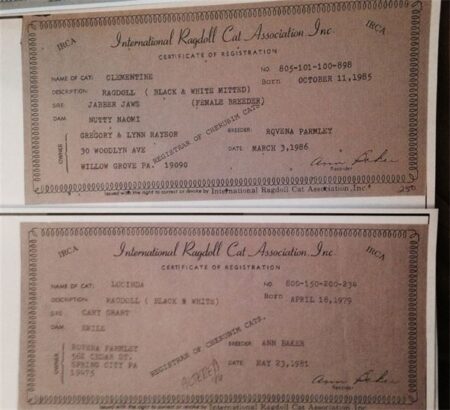 IRCA International Ragdoll Cat Association, Inc. IRCA
CERTIFICATE OF REGISTRATION
NAME OF CAT: CLEMENTINE NO. 805-101-100-898
DESCRIPTION: RAGDOLL ( BLACK & WHITE MITTED) Born OCTOBER 11, 1985
SIRE: JABBER JAWS (FEMALE BREEDER)
DAM: NUTTY NAOMI
REGISTRAR OF CHERUBIM CATS.
OWNER GREGORY & LYNN RAYSOR BREEDER: ROVENA PARMLEY
30 WOODLYN AVE DATE: MARCH 3, 1986
WILLOW GROVE PA. 19090
Ann Baker
Recorder
Issued with the right to correct or revoke by International Ragdoll Cat Association, Inc.
250
IRCA International Ragdoll Cat Association, Inc. IRCA
CERTIFICATE OF REGISTRATION
NAME OF CAT: LUCINDA NO.
DESCRIPTION: RAGDOLL ( BLACK & WHITE) Born APRIL 18, 1979
SIRE: CARY GRANT
DAM:
REGISTRAR OF CHERUBIM CATS.
OWNER ROVENA PARMLEY BREEDER: ANN BAKER
CEDAR ST.
SPRING CITY PA DATE: MAY 23, 1981
19475
ALTERED
Ann Baker
Recorder
Issued with the right to correct or revoke by International Ragdoll Cat Association, Inc.